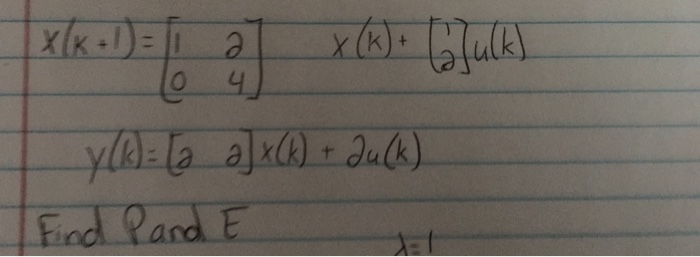 x(k+1) = [1 2; 0 4] x(k) + [1; 2] u(k)
y(k) = [2 2] x(k) + 2u(k)
Find P and E
λ=1